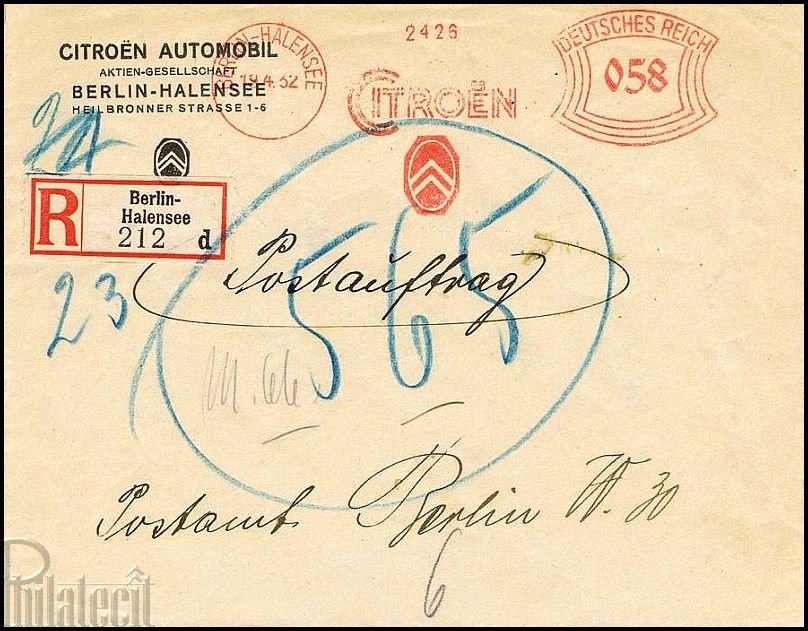 CITROËN AUTOMOBIL
AKTIEN-GESELLSCHAFT
BERLIN-HALENSEE
HEILBRONNER STRASSE 1-6
BERLIN-HALENSEE
19.4.32
2426
CITROËN
DEUTSCHES REICH
058
R
Berlin-
Halensee
212 d
23
565
Postauftrag
Postamt Berlin W. 30
6
Philatecit